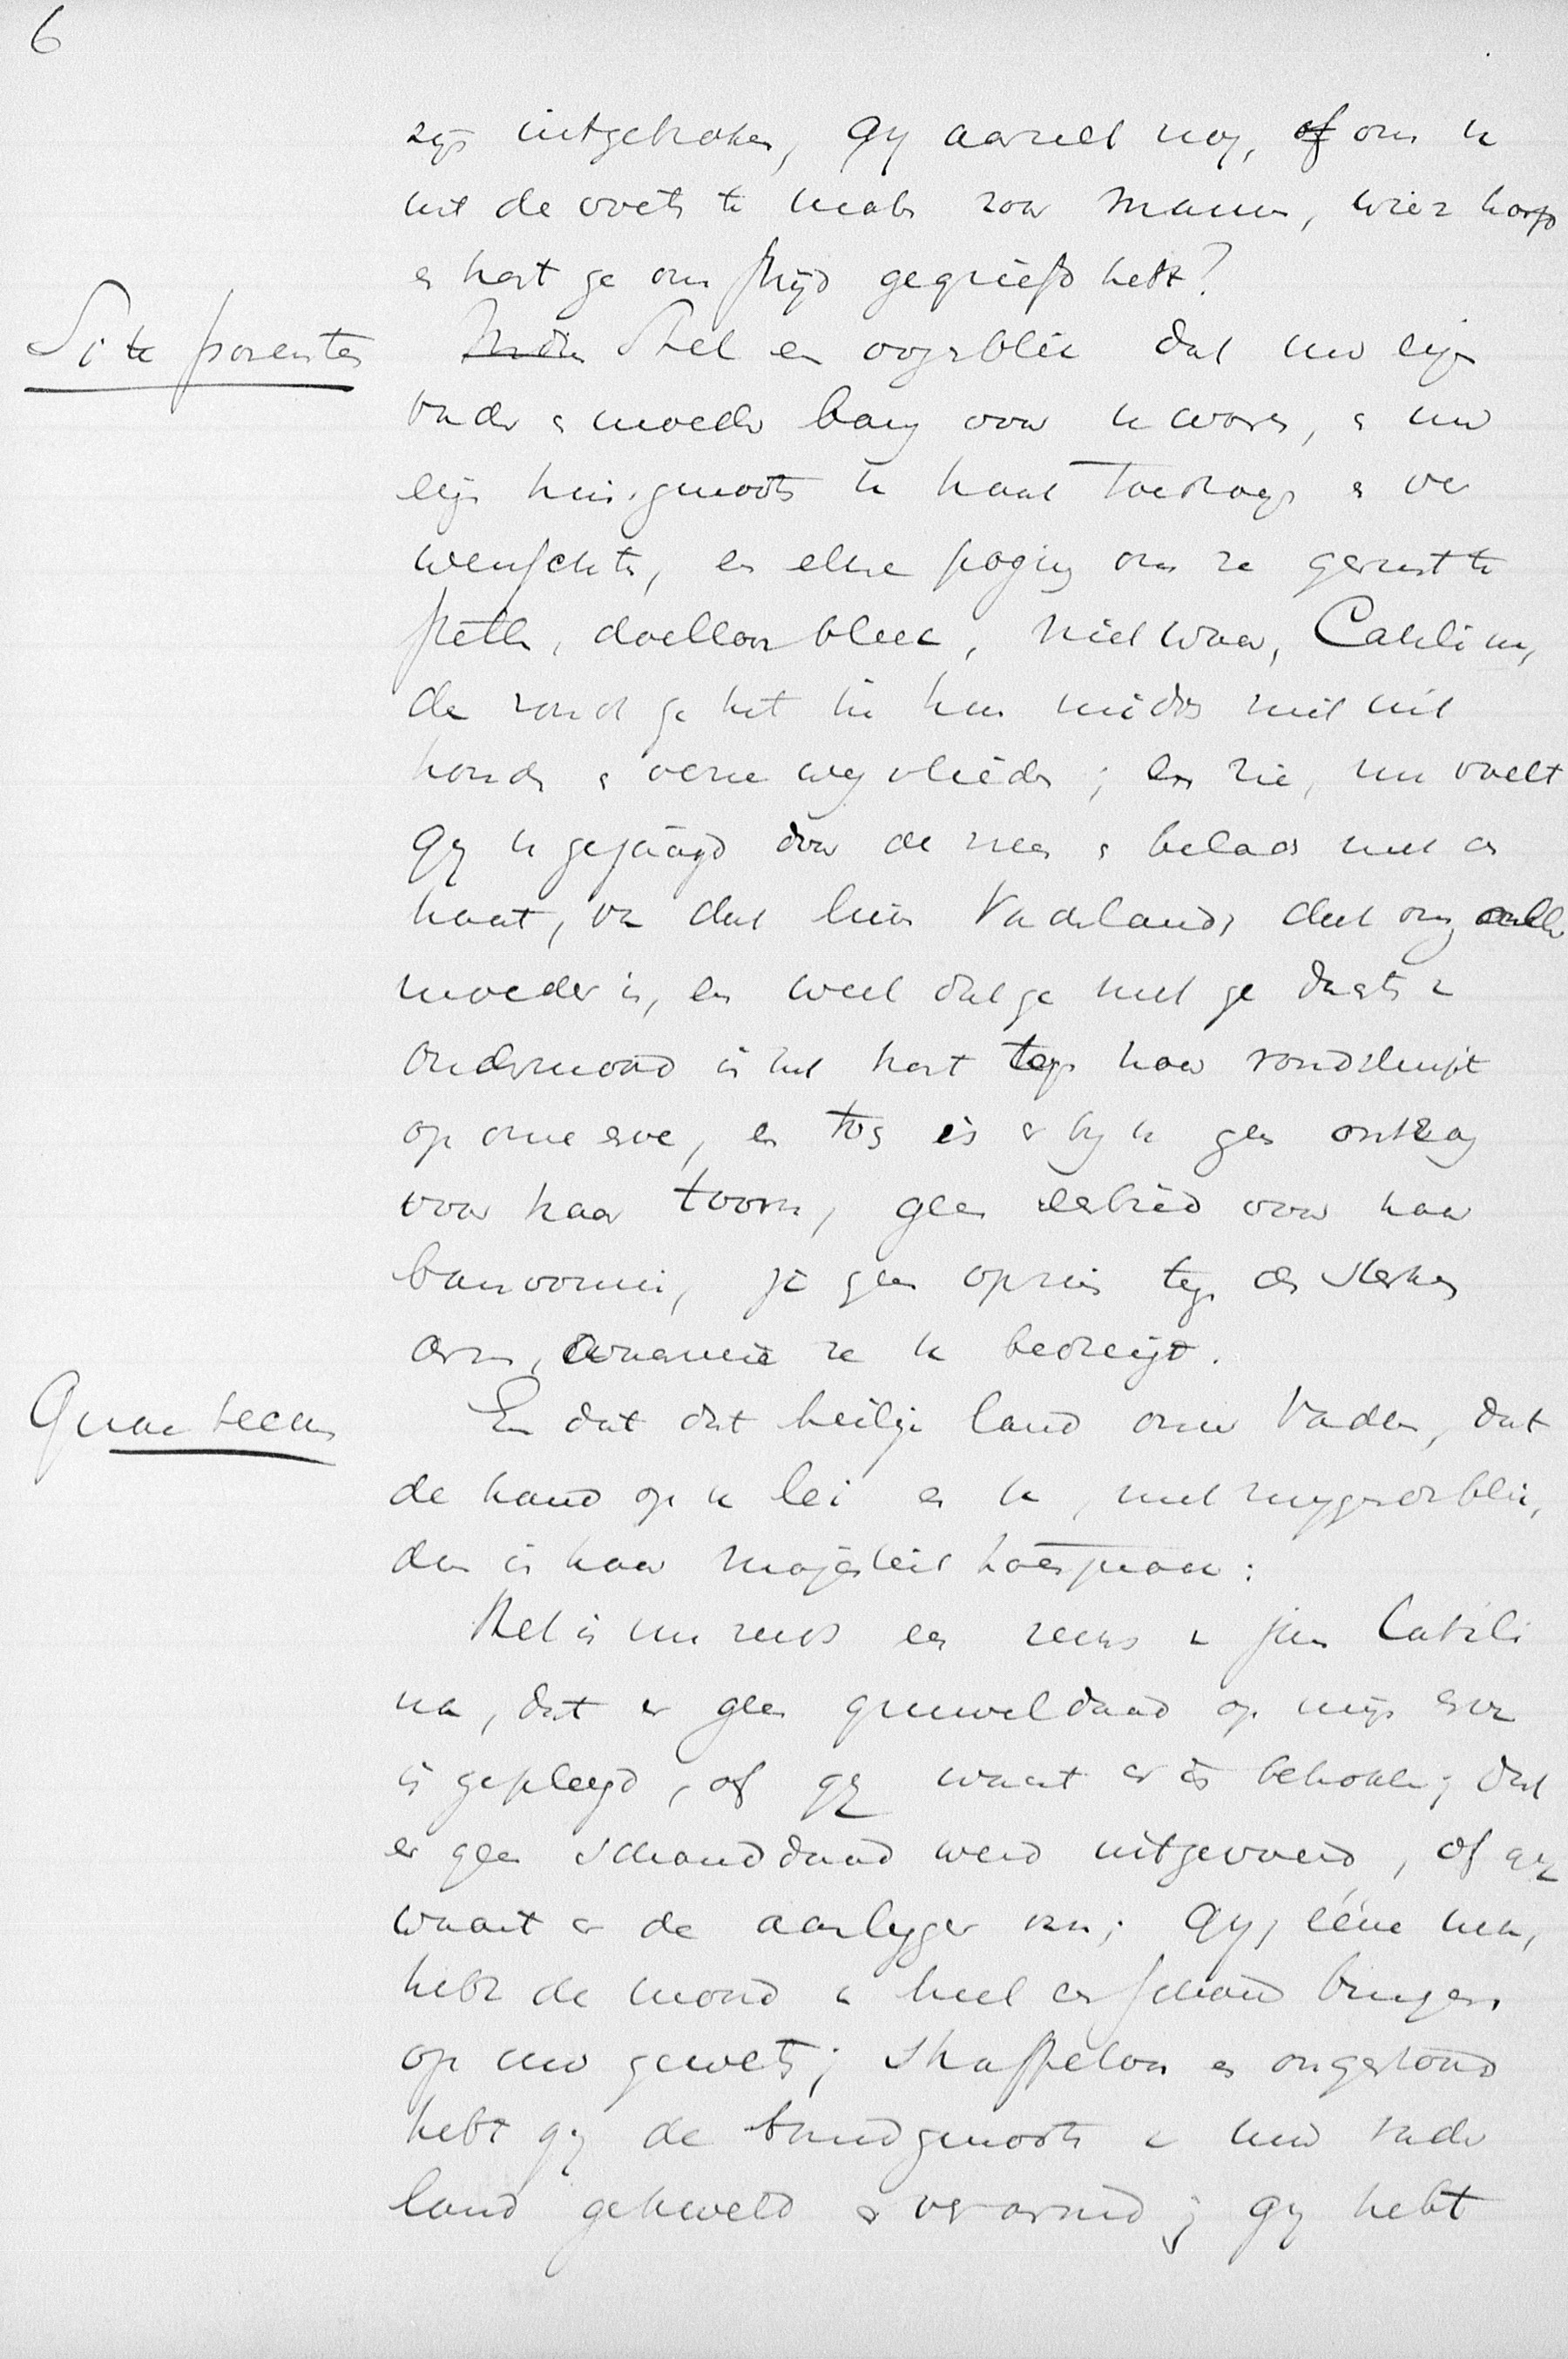 6
zijn uitgebroken, gy aarzelt nog, of om u
uit de voets te maken voor mannen, wier
en hart ge om strijd gegriefd hebt?
Si te parentes
Indien Stel een oogenblik dat uw eigen
vader en moeder bang voor u waren, en uw
eigen huisgenooten u haat toedroegen en ver
wenschten, en elke poging om ze gerust te
stellen, doelloos bleek, niet waar, Catilina,
dan zoudt ge het in hun midden niet uit
houden en verre weg vlieden; en zie, nu voelt
gy u gejaagd door de vrees en beladen met den
haat, van dat lieve Vaderland, dat ons aller
moeder is, en weet dat ge met gedachten van
oudermoord in het hart tegen haar rondsluipt
op onze erve, en tog is er by u geen ontzag
voor haar toorn, geen eerbied voor haar
banvonnis, ja geen opzien tegen den sterken
arm, waarmeê ze u bedreigt.
Quae tecum
En dat dat heilige land onzer Vaderen, dat
de hand op u lei en u, met blik,
dus in haar majesteit toesprak:
Het is nu reeds een reeks van jaren Catili
na, dat er geen gruweldaad op mijn erve
is gepleegd, of gy waart er in betrokken; dat
er geen schanddaad werd uitgevoerd, of gy
waart er de aanlegger van; gy, ééne man,
hebt de moord van heel een schaar burgers
op uw geweten; straffeloos en ongestoord
hebt gy de bondgenooten van uw vader
land gekweld en verarmd; gy hebt